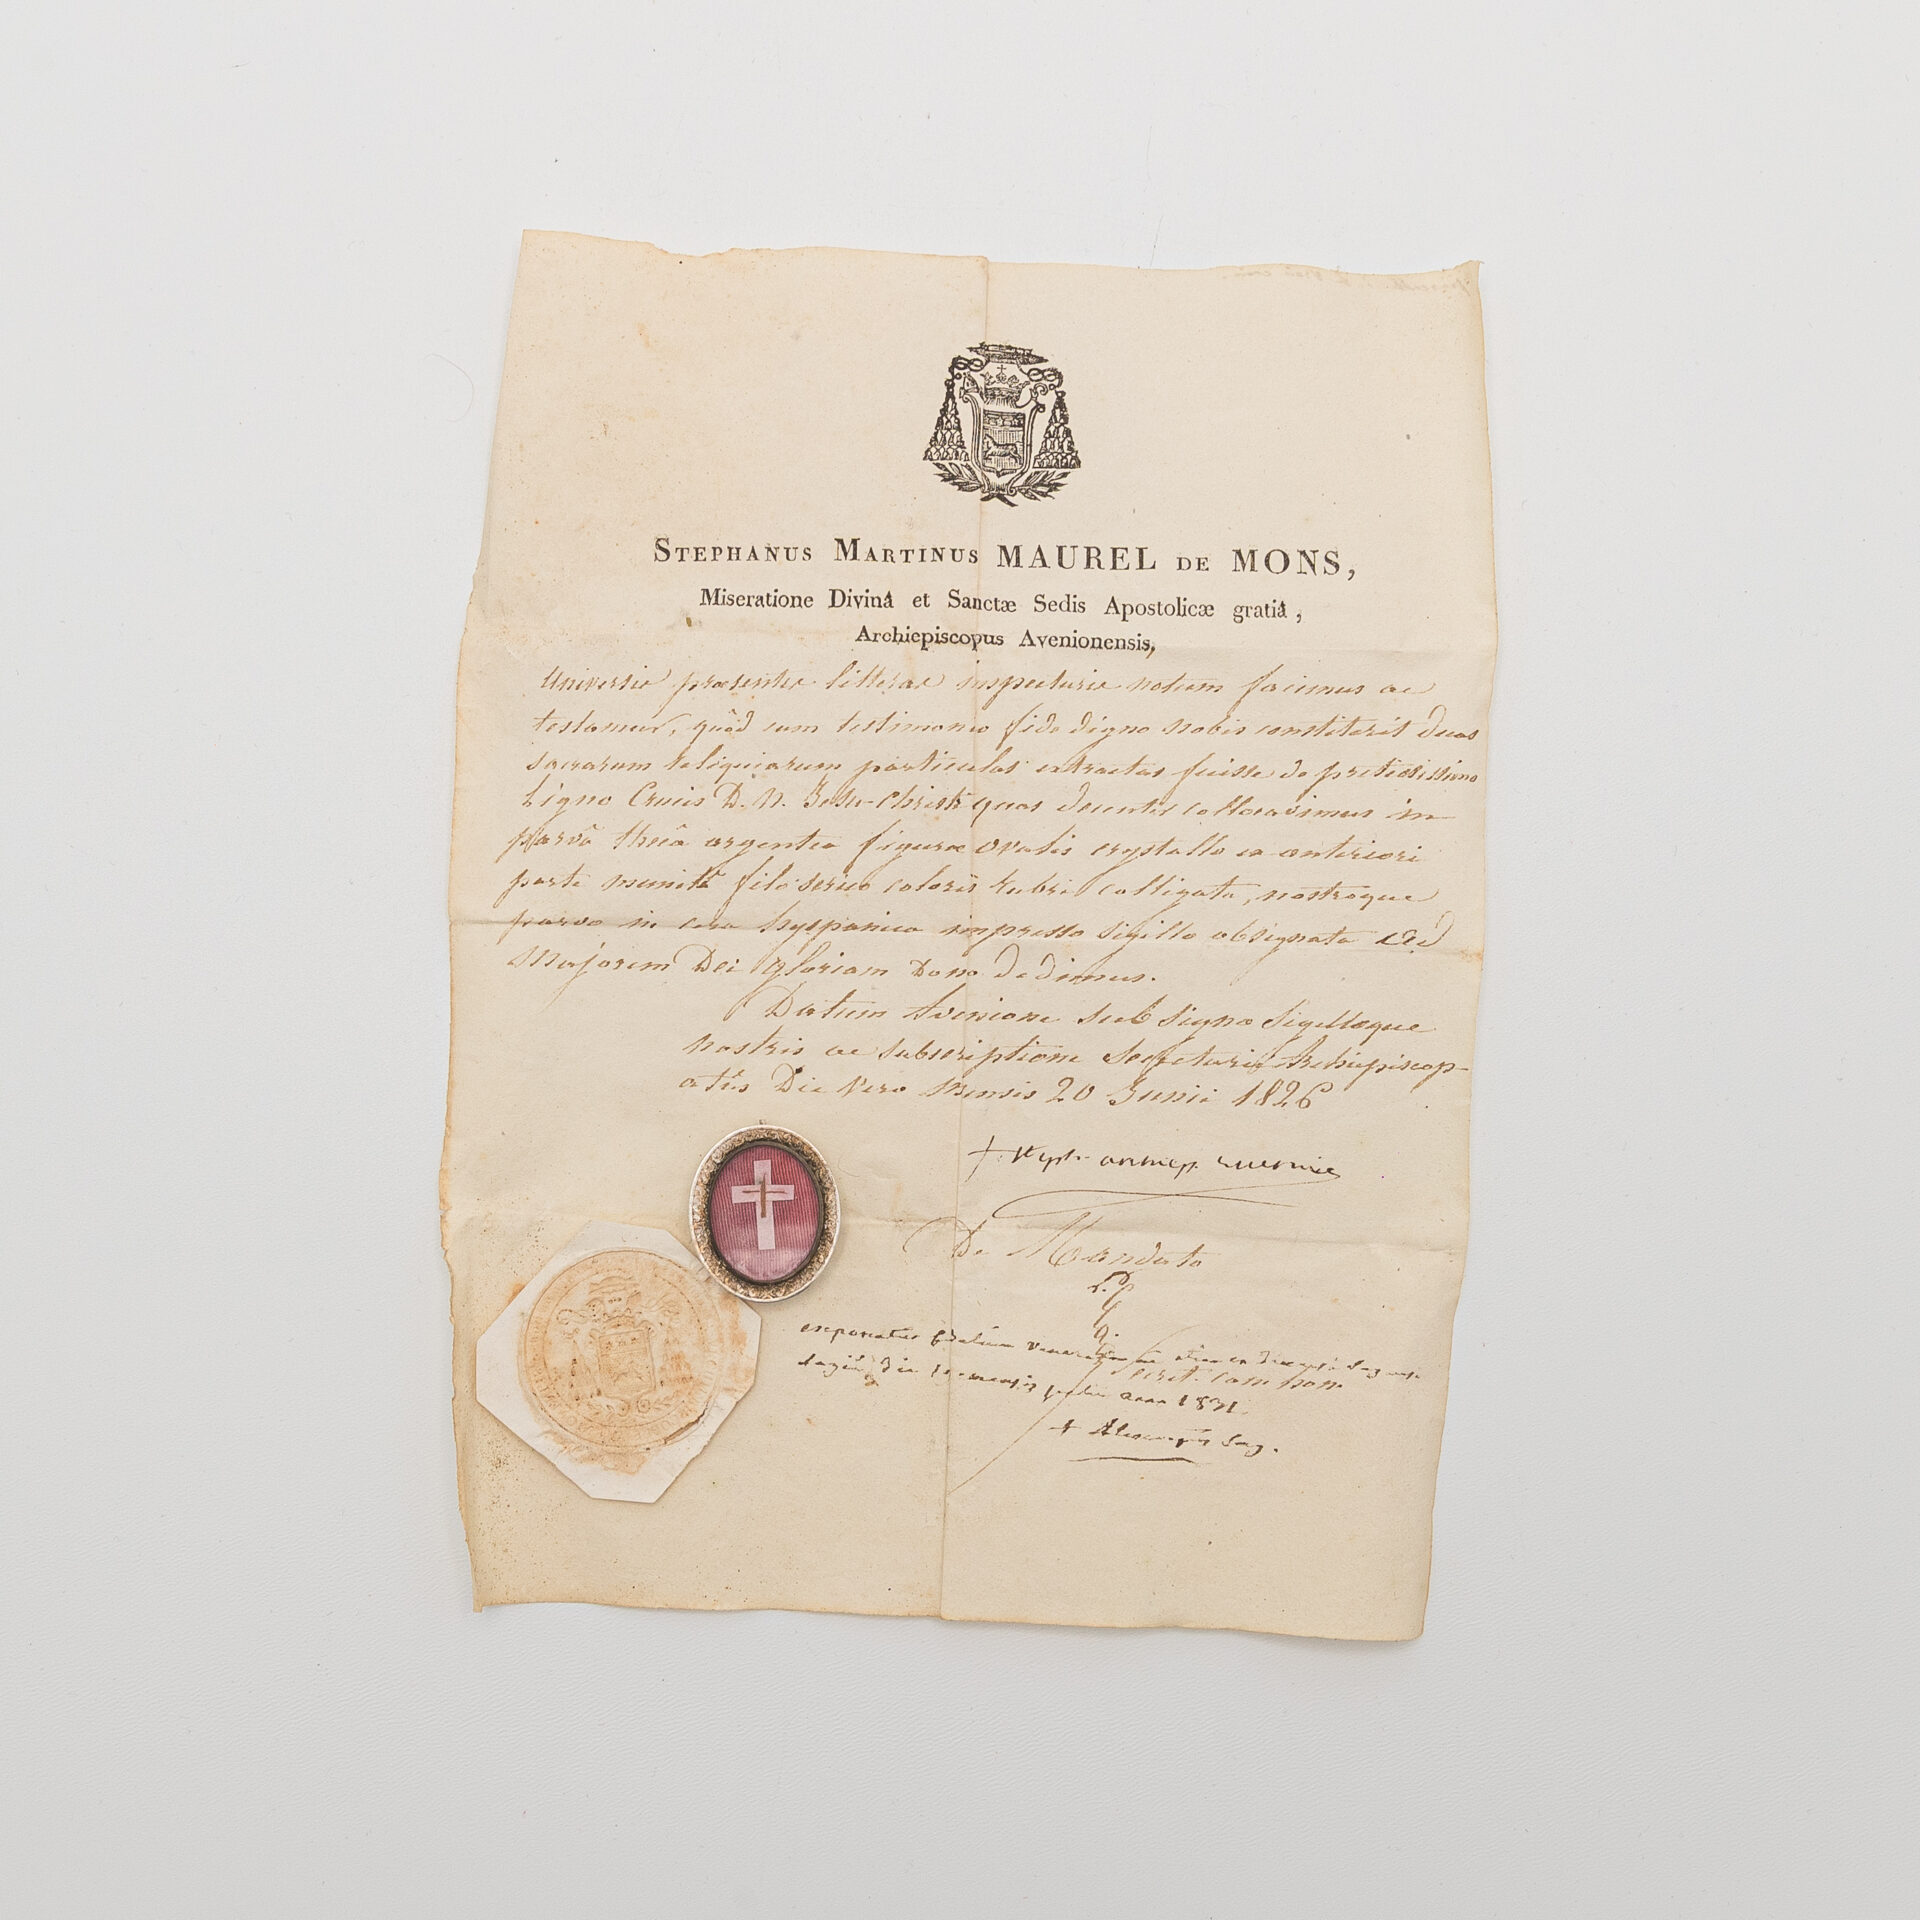 STEPHANUS MARTINUS MAUREL DE MONS,
Miseratione Divinâ et Sanctæ Sedis Apostolicæ gratiâ,
Archiepiscopus Avenionensis,
Universis præsentes litteras inspecturis notum facimus ac
testamur, quòd cum testimonio fide digno nobis constiterit duas
sacrarum reliquiarum particulas extractas fuisse de pretiosissimo
Ligno Crucis D. N. Jesu-Christi quas decenter collocavimus in
parvâ thecâ argentea figuræ ovalis crystallo ex anteriori
parte munitâ filo serico coloris rubri colligata, nostroque
parvo in cera hyspanica impresso sigillo obsignata ad
Majorem Dei gloriam Dono dedimus.
Datum Avenione sub signo sigilloque
nostris ac subscriptione secretarii Archiepiscop-
atûs Die vero mensis 20 Junii 1826
+ Steph. archiep. avenion
De Mandato
exponatur fidelium venerationi
secret.
die mensis anno 1831.
+